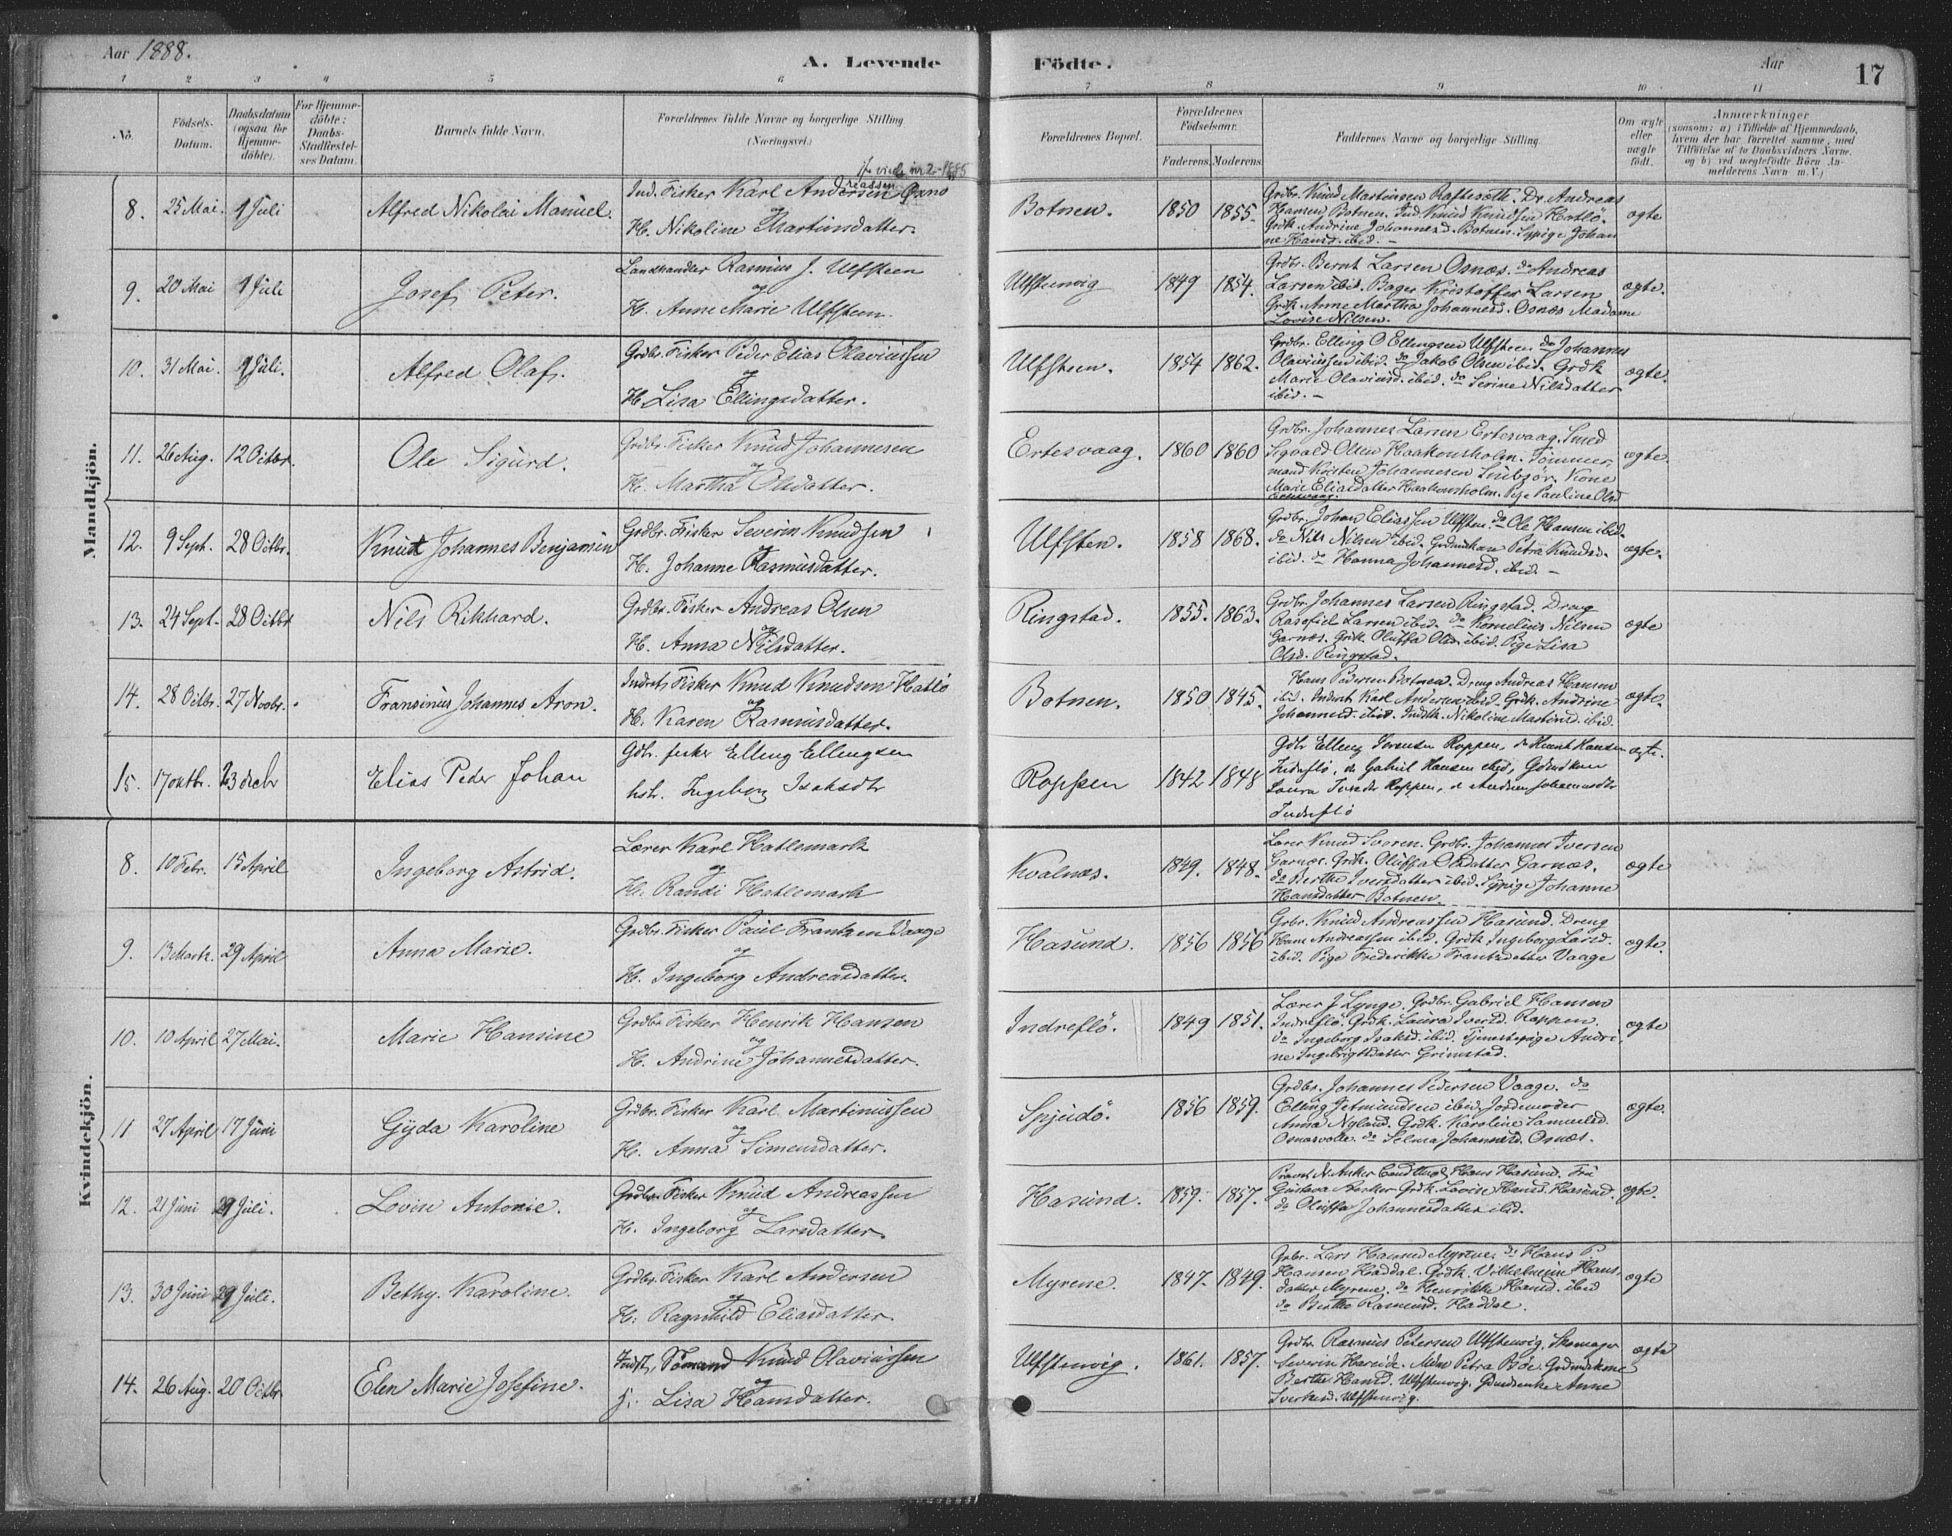 Aar 1888.
A. Levende
Födte.
Aar
17
1 2 3 4 5 6 7 8 9 10 11
No.
Födsels-Datum.
Daabsdatum (ogsaa for Hjemme-döbte).
For Hjemme-döbte: Daabs-Stadfæstel-ses Datum.
Barnets fulde Navn.
Forældrenes fulde Navne og borgerlige Stilling (Næringsvei.)
Forældrenes Bopæl.
Forældrenes Födselsaar.
Faderens. Moderens.
Faddernes Navne og borgerlige Stilling.
Om ægte eller uægte födt.
Anmærkninger
(saasom: a) i Tilfælde af Hjemmedaab, hvem der har forrettet samme, med Tilföielse af to Daabsvidners Navne, og b) ved uægtefödte Börn An-melderens Navn m. V.)
Mandkjön.
vide nr 2-1885
8. 25 Mai. 1 Juli Alfred Nikolai Manuel. Ind. Fisker Karl Andersen Osno
og
H. Nikoline Martinsdatter. Botnen. 1850 1855. ægte
Grdbr. Knud Martinsen Rafteseth. Dr. Andreas
Hansen Botnen. Ind. Knud Knudsen Hatlö.
Grdk. Andrine Johannesd. Botnen. Pige Johan
ne Hansd. ibid. -
9. 20 Mai 1 Juli Josef Peter. Landhandler Rasmus J. Ulfsteen
og
H. Anne Marie Ulfsteen. Ulfstenvig 1849 1854. ægte.
Grdbr. Bernt Larsen Osnæs. do Andreas
Larsen ibid. Bager Kristoffer Larsen
Grdk. Anne Martha Johannesd. Osnæs Madame
Lovise Nilsen.
10. 31 Mai. 1 Juli. Alfred Olaf. Grdbr. Fisker Peder Elias Olaviussen
og
H. Lisa Ellingsdatter. Ulfsteen. 1854 1862. ægte.
Grdbr. Elling O Ellingsen Ulfsteen. do Johannes
Olaviussen ibid. do Jakob Olsen ibid. Grdk
Marie Olaviusd. ibid. do Serine Nilsdatter
ibid. -
11. 26 Aug. 12 Octbr. Ole Sigurd. Grdbr. Fisker Knud Johannesen
og
H. Martha Olsdatter. Ertesvaag. 1860 1860 ægte.
Grdbr. Johannes Larsen Ertesvaag. Smed
Sigvald Olsen Haakonsholm. Tömmer
mand Karsten Johannesen. Kone
Marie Eliasdatter Haakonsholm. Pige Pauline Olsd
Ertesvaag.
12. 9 Sept. 28 Octbr. Knut Johannes Benjamin Grdbr. Fisker Severin Knudsen
og
H. Johanne Rasmusdatter. Ulfsten. 1858 1868. ægte.
Grdbr. Johan Eliassen Ulfsten. do Ole Hansen ibid.
do Nils Nilsen ibid. Grdmdskone Petra Knudsd.
ibid. do Hanna Johannesd. ibid. -
13. 24 Sept. 28 Octbr Nils Rikhard. Grdbr. Fisker Andreas Olsen
og
H. Anna Nilsdatter. Ringstad. 1855. 1863. ægte
Grdbr. Johannes Larsen Ringstad. Dreng
Larsen ibid. do Kornelius Nilsen
Garnæs. Grdk. Oluffa Olsd. ibid. Pige Lisa
Olsd. Ringstad.
14. 28 Octbr. 27 Novbr. Fransinus Johannes Aron. Inderst Fisker Knud Knudsen Hatlö
og
H. Karen Rasmusdatter. Botnen. 1850 1845. ægte.
Hans Pedersen Botnen. Dreng Andreas Hansen
ibid. Inderst Karl Andersen ibid. Grdk. Andrine
Johannesd. ibid. Indstk. Nikoline Martinsd. ibid.
15. 17 oktbr. 23 decbr Elias Peder Johan Gdbr. fisker Elling Ellingsen
hstr. Ingeborg Isaksdtr Roppen 1842 1848 ægte.
Gdbr Elling Iversen Roppen, do Henrik Hansen
Indreflö, do Gabriel Hansen ibid, Gdmdskone
Laura Iversdr Roppen, do Andrine Johannesdtr
Indreflö
Kvindekjön.
8. 10 Febr. 15 April Ingeborg Astrid. Lærer Karl Hatlemark
og
H. Randi Hatlemark Kvalnæs. 1849. 1848. ægte
Lærer Knud Iversen. Grdbr. Johannes Iversen
Garnæs. Grdk. Oluffa Olsdatter Garnæs.
do Berthe Iversdatter ibid. Pige Johanne
Hansdatter Botnen.
9. 13 Marts. 29 April Anna Marie. Grdbr. Fisker Paul Frantzen Vaage
og
H. Ingeborg Andreasdatter. Hasund. 1856 1856 ægte.
Grbr. Knud Andreassen Hasund. Dreng
Hans Andreassen ibid. Grdk. Ingeborg Larsd.
ibid. Pige Frederikke Frantzdatter Vaage
10. 10 April 27 Mai. Marie Hansine Grdbr. Fisker Henrik Hansen
og
H. Andrine Johannesdatter. Indreflö. 1849 1851. ægte
Lærer J Lynge. Grdbr. Gabriel Hansen
Indreflö. Grdk. Laura Iversd. Roppen.
do Ingeborg Isaksd. ibid. Tjenestepige Andri
ne Ingebrigtsdatter Grimstad.
11 27 April 17 Juni Gyda Karoline Grdbr. Fisker Karl Martinussen
og
H. Anna Simensdatter. Spjudö. 1856 1859. ægte.
Grdbr. Johannes Pedersen Vaage. do
Elling Jetmundsen ibid. Jordemoder
Anna Nyland. Grdk. Karoline Samuelsd.
Osnæsvolle. do Selma Johannesd. Osnæs.
12. 21 Juni 29 Juli. Lovise Antonie. Grdbr. Fisker Knud Andreassen
og
H. Ingeborg Larsdatter. Hasund. 1859. 1857. ægte.
Hans Hasund. Fru
Gustava Grdk. Lovise Hansd. Hasund.
do Oluffa Johannesdatter ibid.
13. 30 Juni 29 Juli. Bethy Karoline. Grdbr. Fisker Karl Andersen
og
H. Ragnhild Eliasdatter. Myrene. 1847. 1849. ægte
Grbr. Lars Hansen Myrene. do Hans P
Hansen Haddal. Grdk. Vilhelmine Hans,
datter Myrene. do Henrikke Hansd. ibid
do Berthe Rasmusd. Haddal.
14. 26 Aug. 20 Octbr. Elen Marie Josefine. Indst. Sömand Knud Olaviussen
og
H. Lisa Hansdatter. Ulfstenvig. 1861. 1857. ægte
Grdbr. Rasmus Petersen Ulfstenvig. Skomager
Severin Hareide. Mdm Petra Böe. Grdmdskone
Berthe Hansd. Ulfstenvig. Gmdsenke Anne
Iversd. Ulfstenvig.